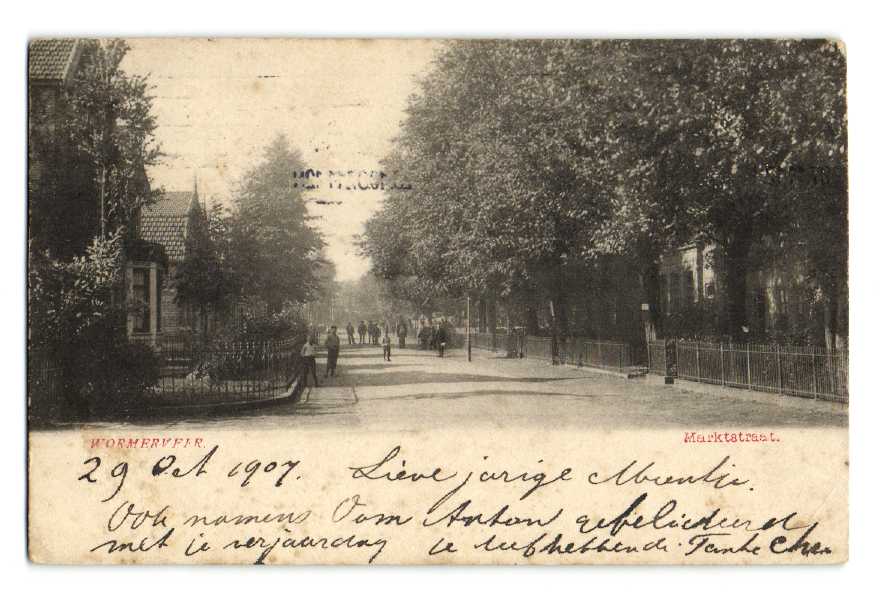 WORMERVEER.
Marktstraat.
29 Oct 1907. Lieve jarige
Ook namens Oom Anton gefeliciteerd
met je verjaardag je liefhebbende Tante